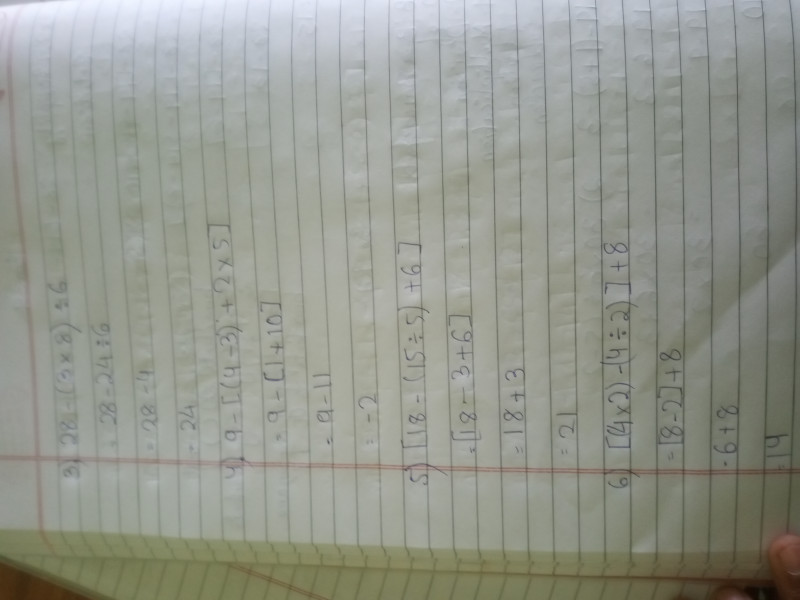 3) 28 - (3 × 8) ÷ 6
= 28 - 24 ÷ 6
= 28 - 4
= 24
4) 9 - [(4 - 3) + 2 × 5]
= 9 - [1 + 10]
= 9 - 11
= -2
5) [18 - (15 ÷ 5) + 6]
= [18 - 3 + 6]
= 18 + 3
= 21
6) [(4 × 2) - (4 ÷ 2)] + 8
= [8 - 2] + 8
= 6 + 8
= 14